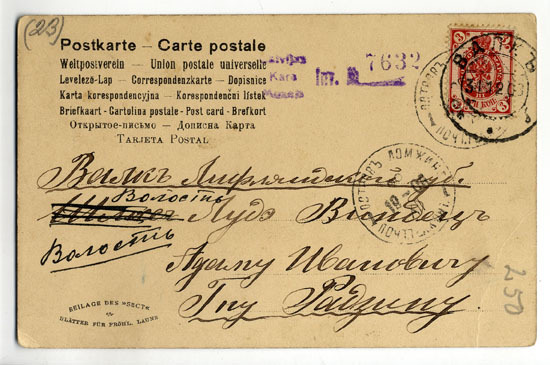 (23)
Postkarte – Carte postale
Weltpostverein – Union postale universelle
Levelező-Lap – Correspondenzkarte – Dopisnice
Karta korespondencyjna – Korespondenční lístek
Briefkaart - Cartolina postale - Post card - Brefkort
Открытое-письмо – Дописна Карта
Tarjeta Postal
Inv. № 7632
3 3
ВАЛКЪ
ОСТРОВЪ ЛОМЖИН.
Валкъ Лифляндской губ
Волость
Лудэ
Волость
Адаму Ивановичу
Гну Радзину
BEILAGE DES »SECT«
BLÄTTER FÜR FRÖHL. LAUNE
250